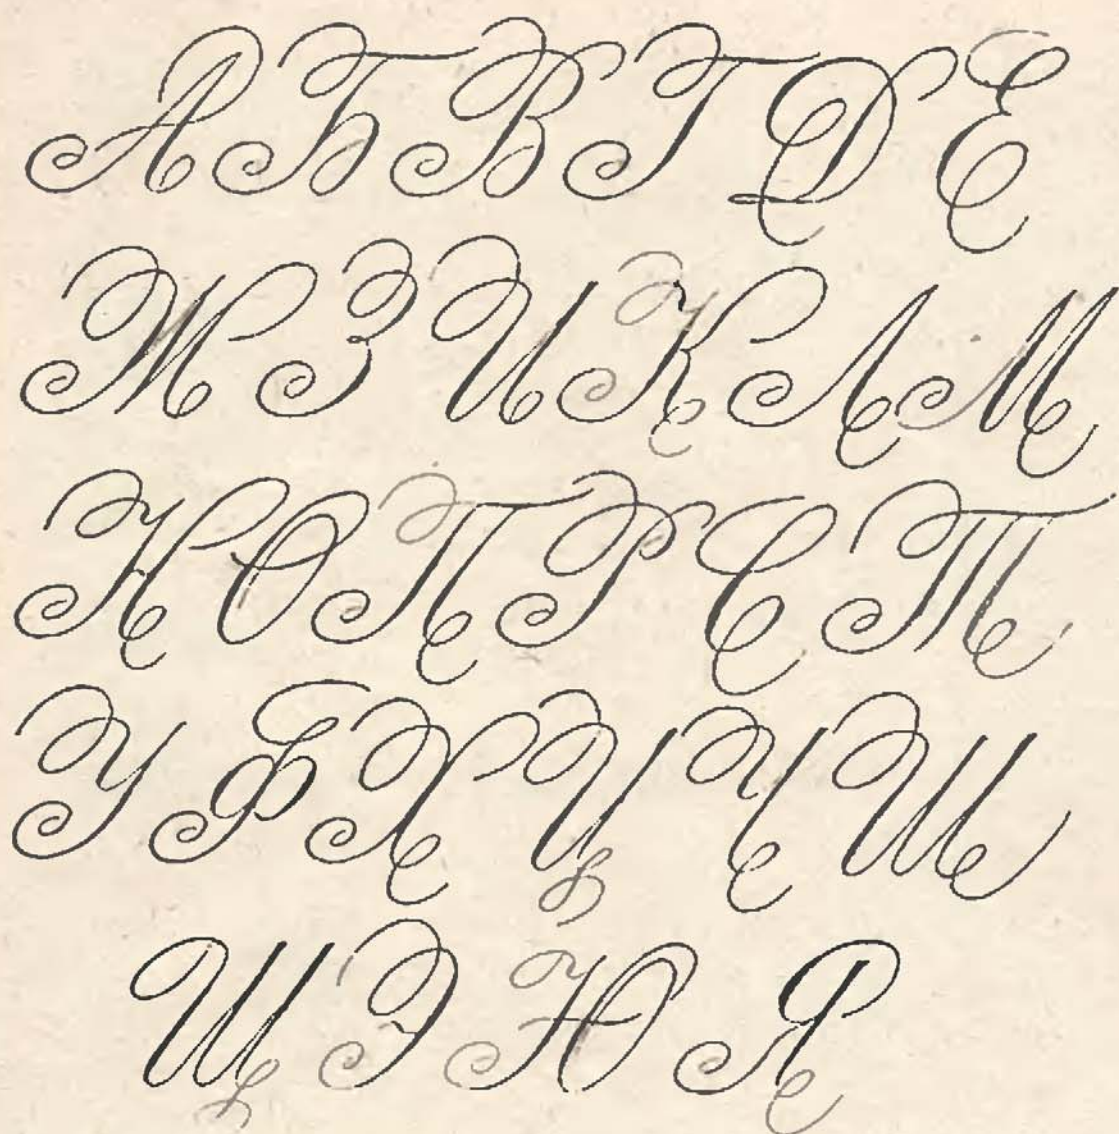 А Б В Г Д Е
Ж З И К Л М
Н О П Р С Т
У Ф Х Ц Ч Ш
Щ Э Ю Я